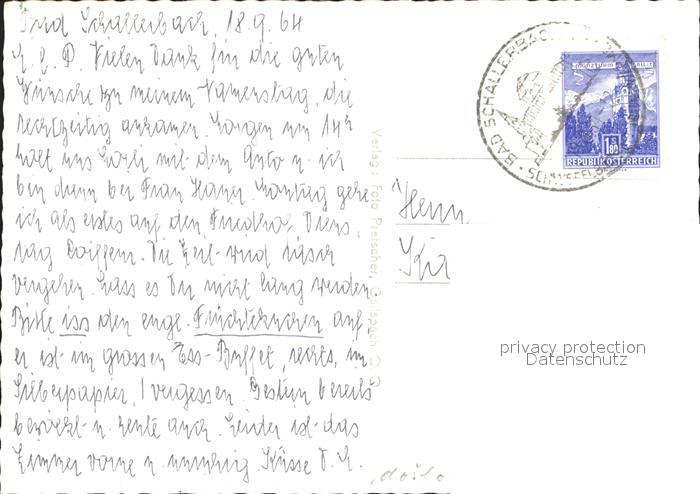 Bad Schallerbach, 18.9.64
L. l. P. Vielen Dank für die guten
Wünsche zu meinem Namenstag, die
rechtzeitig ankamen. Morgen um 14h
holt uns mit dem Auto u. ich
bin dann bei Frau Montag gehe
ich als erstes auf den Friedhof, Diens-
tag Coiffeur. Die Zeit wird rasch
vergehen. Lass es Dir nicht lang werden
Bitte iss den engl. Früchtekuchen auf
er ist im grossen Ess-Buffet, rechts, im
Silberpapier, vergessen. Gestern bereits
bewölkt u. heute auch. Leider ist das
Zimmer vorne u. unruhig Küsse D. L.
došlo
Verlag: Foto Preischer, Gallspach O.Ö.
Herrn
BAD SCHALLERBACH
REPUBLIK ÖSTERREICH
1.80
privacy protection
Datenschutz